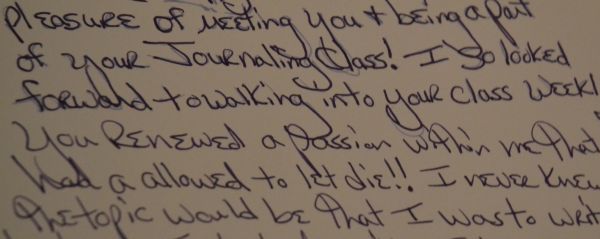 pleasure of meeting you + being a part
of your Journaling Class! I so looked
forward to walking into your class weekl
You Renewed a passion within me that
had a allowed to let die!! I never knew
the topic would be that I was to writ